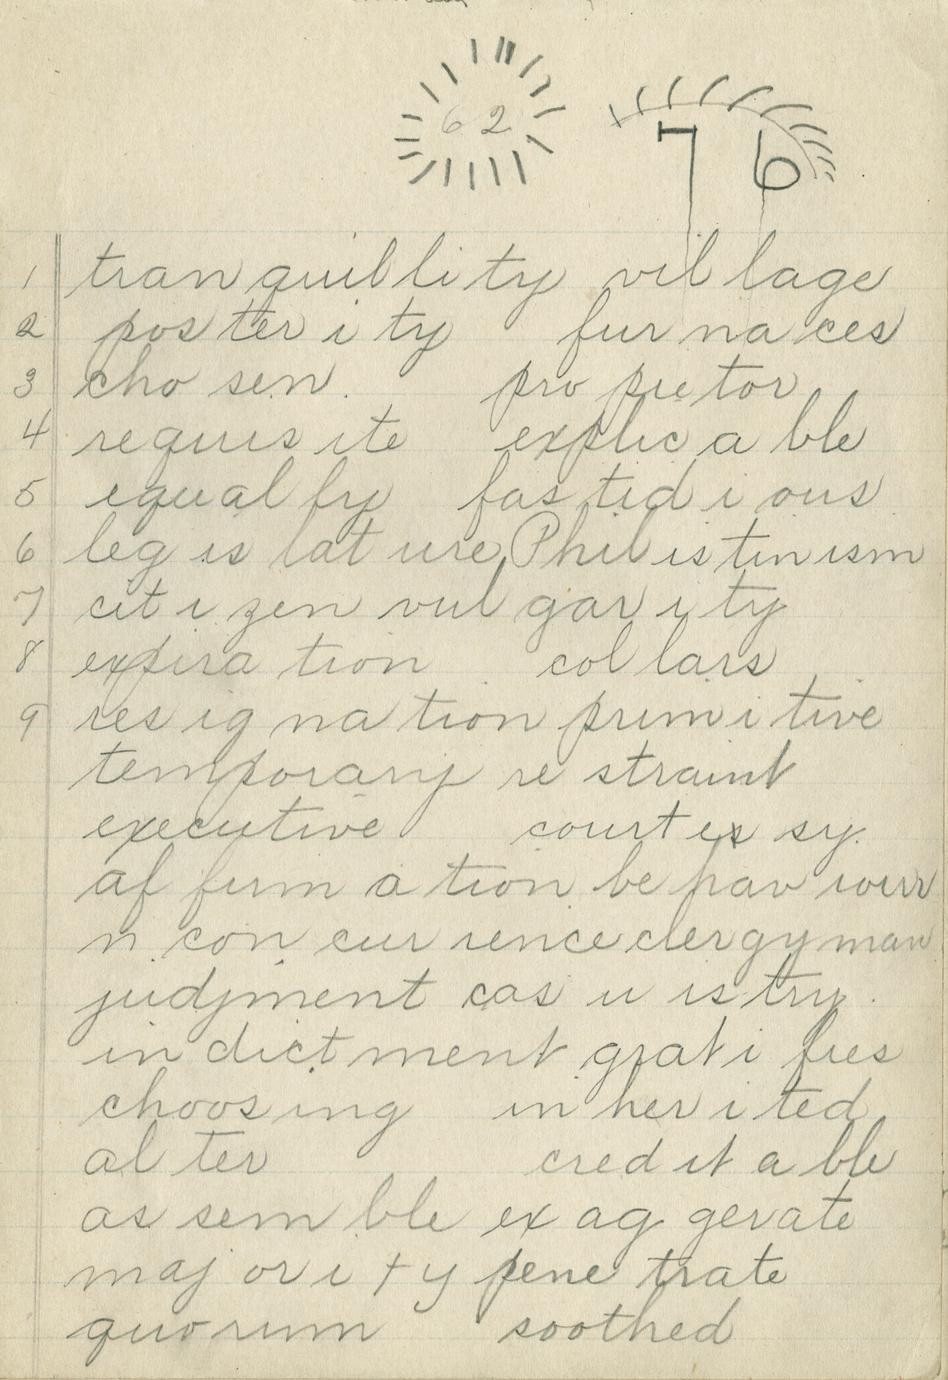 62 76
1 tran quil li ty vil lage
2 pos ter i ty fur na ces
3 cho sen. pro prietor
4 requis ite explic a ble
5 equal ly fas tid i ous
6 leg is lat ure Phil is tin ism
7 cit i zen vul gar i ty
8 expira tion col lars
9 res ig na tion prim i tive
temporary re straint
executive court es sy.
af firm a tion be hav iour
n con cur rence clergyman
judgment cas u is try.
in dict ment grat i fies
choos ing in her i ted
al ter cred it a ble
as sem ble ex ag gerate
maj or i ty pene trate
quo rum soothed